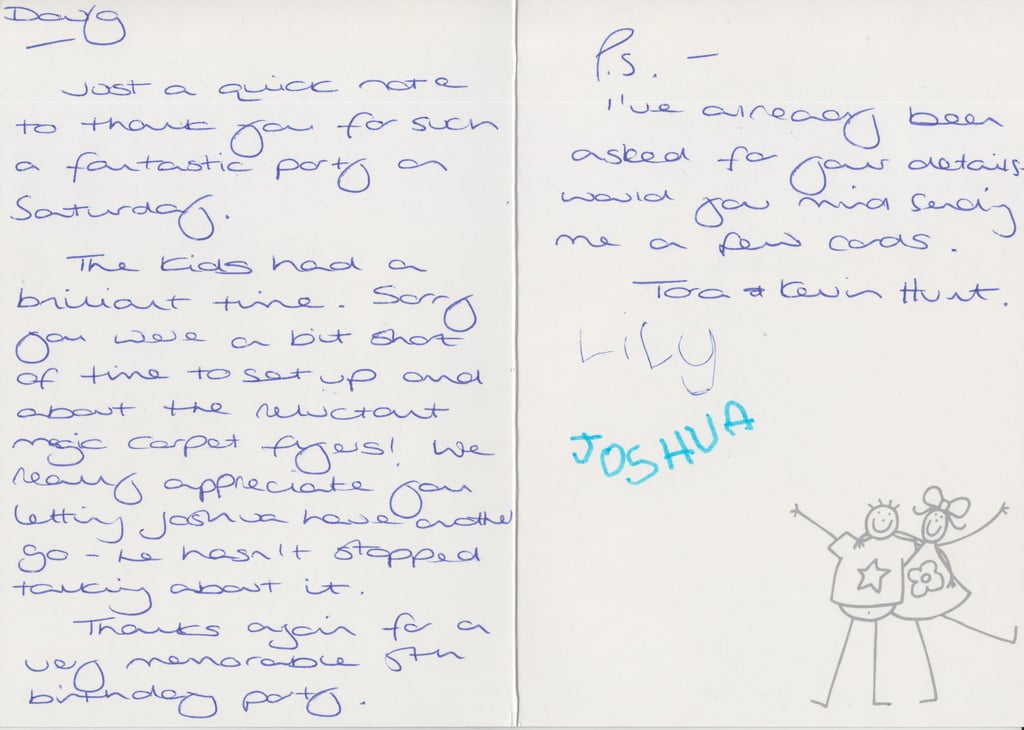 Doug
Just a quick note
to thank you for such
a fantastic party on
Saturday.
The kids had a
brilliant time. Sorry
you were a bit short
of time to set up and
about the reluctant
magic carpet flyers! We
really appreciate you
letting Joshua have another
go - he hasn't stopped
talking about it.
Thanks again for a
very memorable 5th
birthday party.
P.s. -
I've already been
asked for your details.
would you mind sending
me a few cards.
Tora & Kevin Hunt.
LiLy
JOSHUA